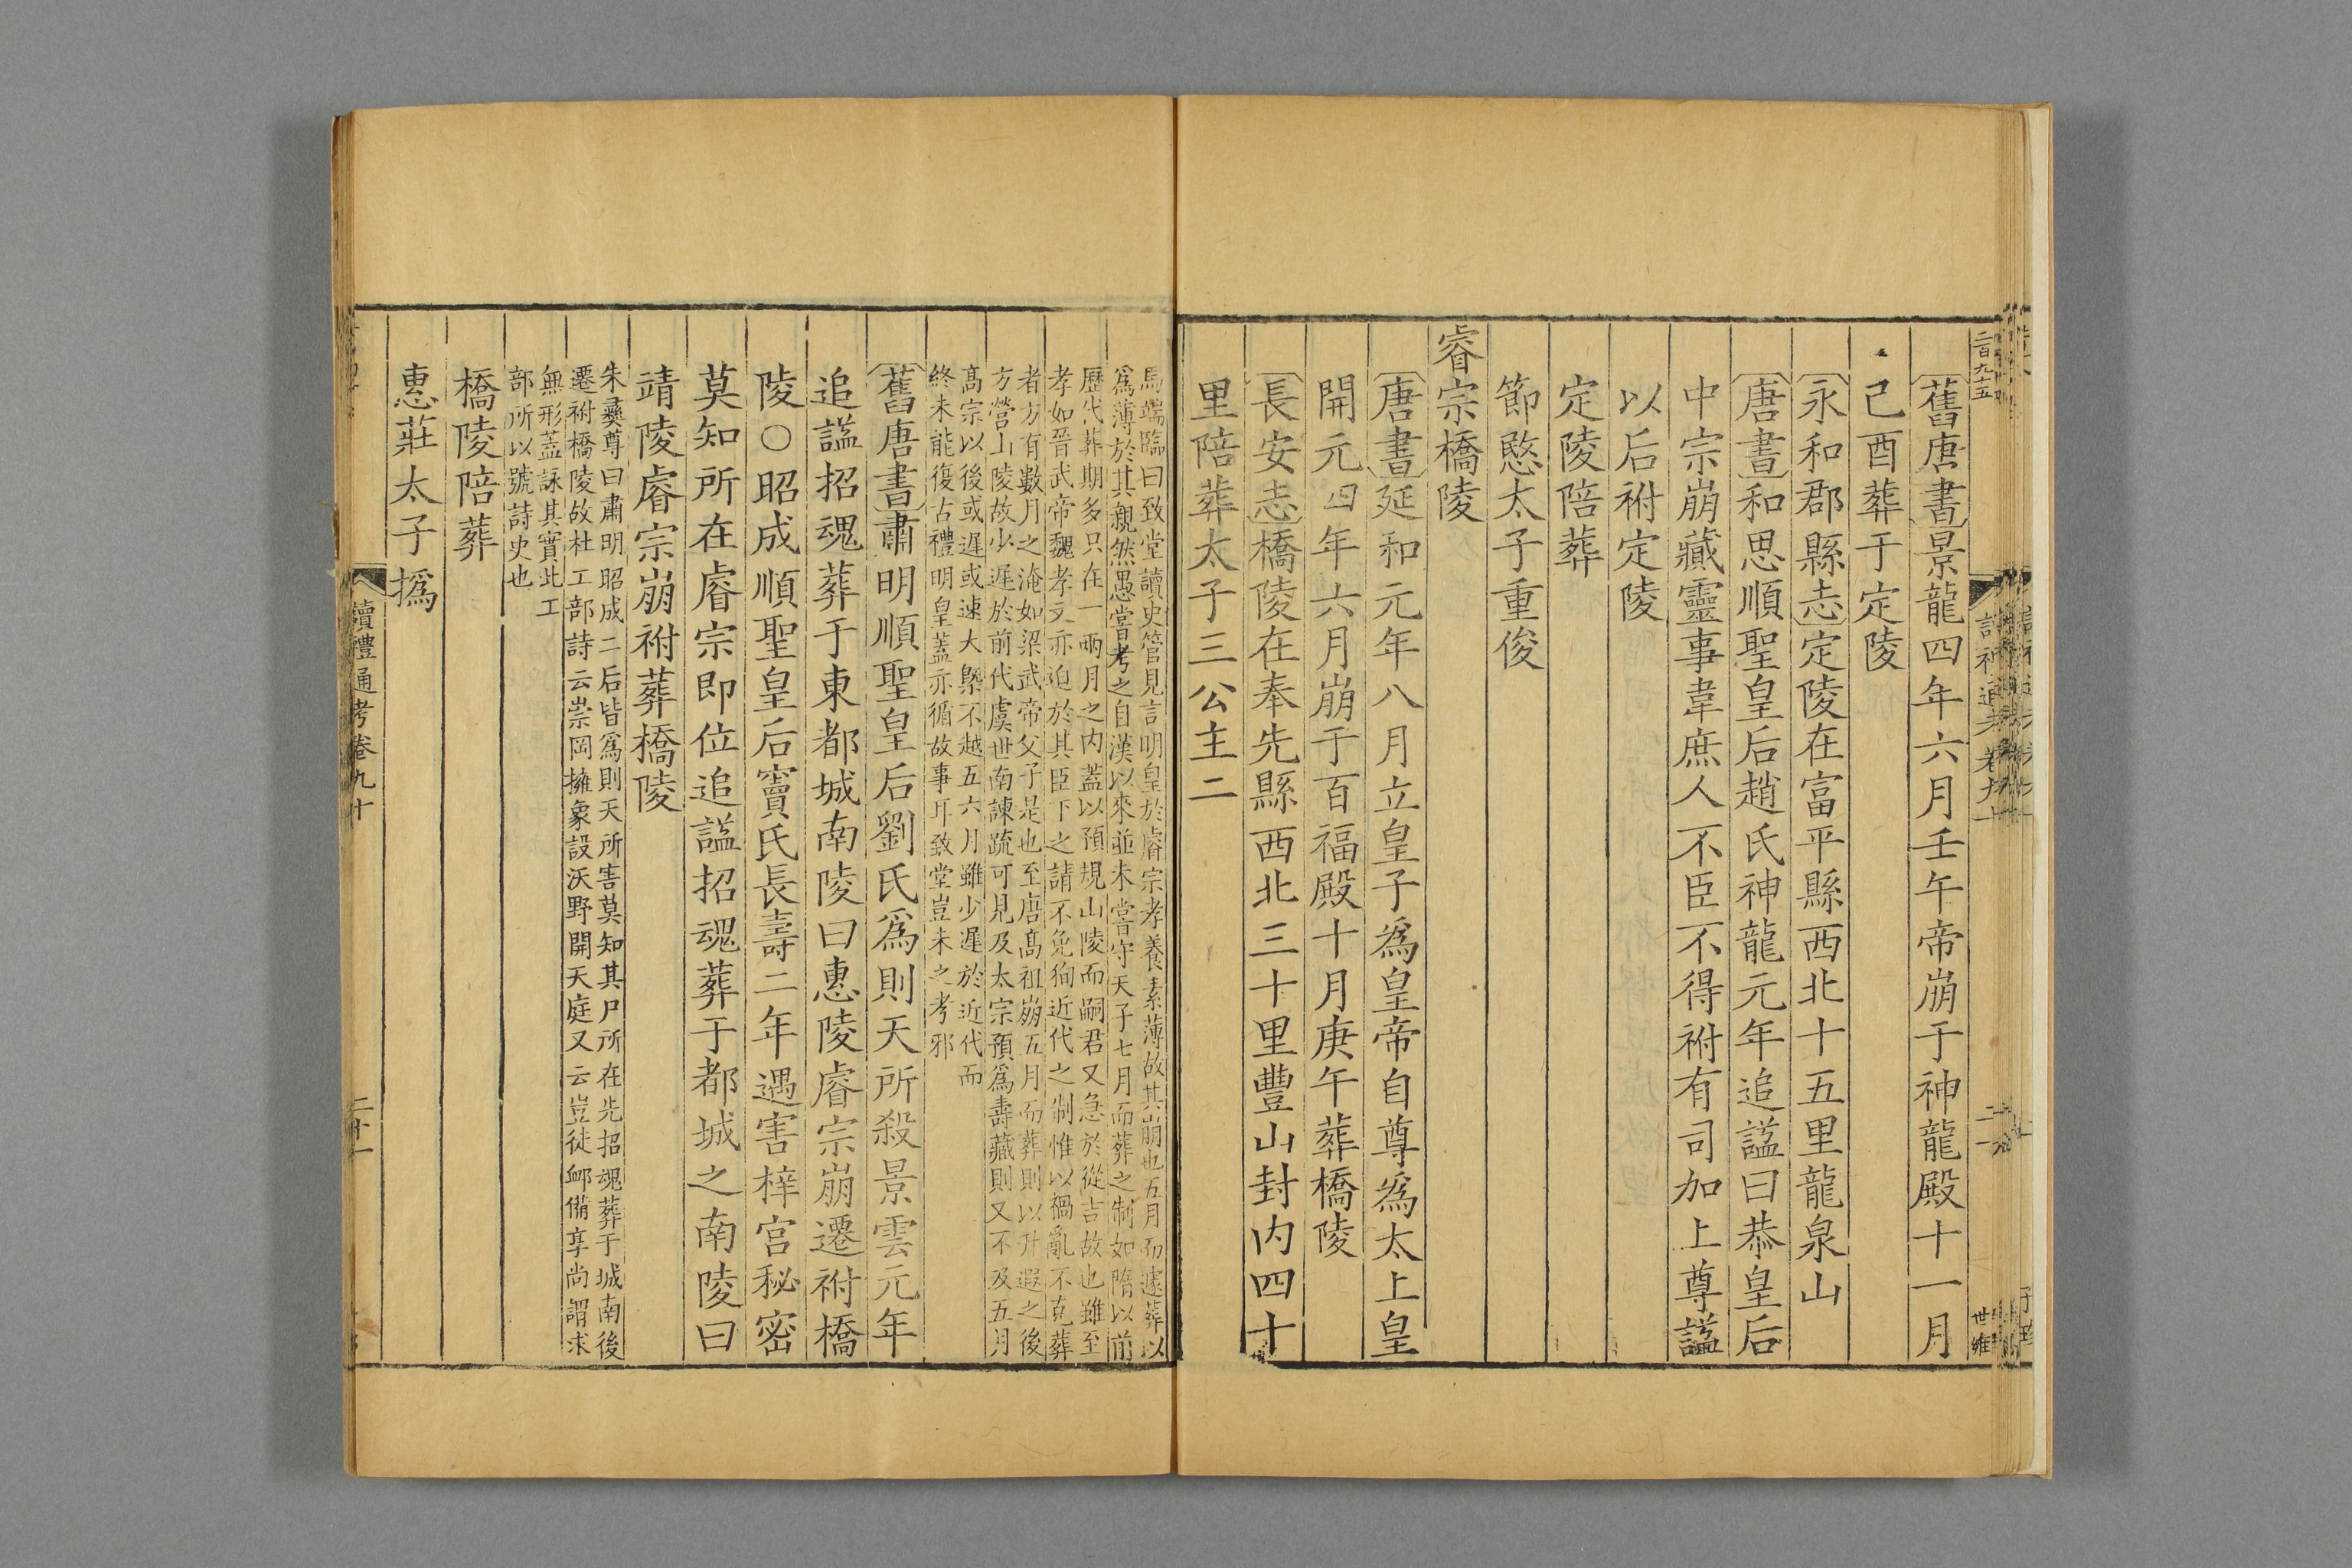 二百九十五
舊唐書景龍四年六月壬午帝崩于神龍殿十一月
己酉葬于定陵
永和郡縣志定陵在富平縣西北十五里龍泉山
唐書和思順聖皇后趙氏神龍元年追諡曰恭皇后
中宗崩藏靈事韋庶人不臣不得祔有司加上尊諡
以后祔定陵
定陵陪葬
節愍太子重俊
睿宗橋陵
唐書延和元年八月立皇子為皇帝自尊為太上皇
開元四年六月崩于百福殿十月庚午葬橋陵
長安志橋陵在奉先縣西北三十里豐山封内四十
里陪葬太子三公主二
馬端臨曰致堂讀史管見言明皇於睿宗孝養素薄故其崩也五月而遽葬以
爲薄於其親然愚嘗考之自漢以來並未嘗守天子七月而葬之制如隋以前
歷代葬期多只在一兩月之内蓋以預規山陵而嗣君又急於從吉故也雖至
孝如晉武帝魏孝文亦迫於其臣下之請不免狥近代之制惟以禍亂不克葬
者方有數月之淹如梁武帝父子是也至唐髙祖崩五月而葬則以升遐之後
方營山陵故少遲於前代虞世南諫疏可見及太宗預爲壽藏則又不及五月
髙宗以後或遲或速大槩不越五六月雖少遲於近代而
終未能復古禮明皇蓋亦循故事耳致堂豈未之考邪
舊唐書肅明順聖皇后劉氏爲則天所殺景雲元年
追諡招魂葬于東都城南陵曰惠陵睿宗崩遷祔橋
陵○昭成順聖皇后竇氏長壽二年遇害梓宫秘密
莫知所在睿宗即位追諡招魂葬于都城之南陵曰
靖陵睿宗崩祔葬橋陵
朱彝尊曰肅明昭成二后皆爲則天所害莫知其尸所在先招魂葬于城南後
遷祔橋陵故杜工部詩云崇岡擁象設沃野開天庭又云豈徒䘏備享尚謂求
無形蓋詠其實此工
部所以號詩史也
橋陵陪葬
惠莊太子撝
讀禮通考卷九十
二十一